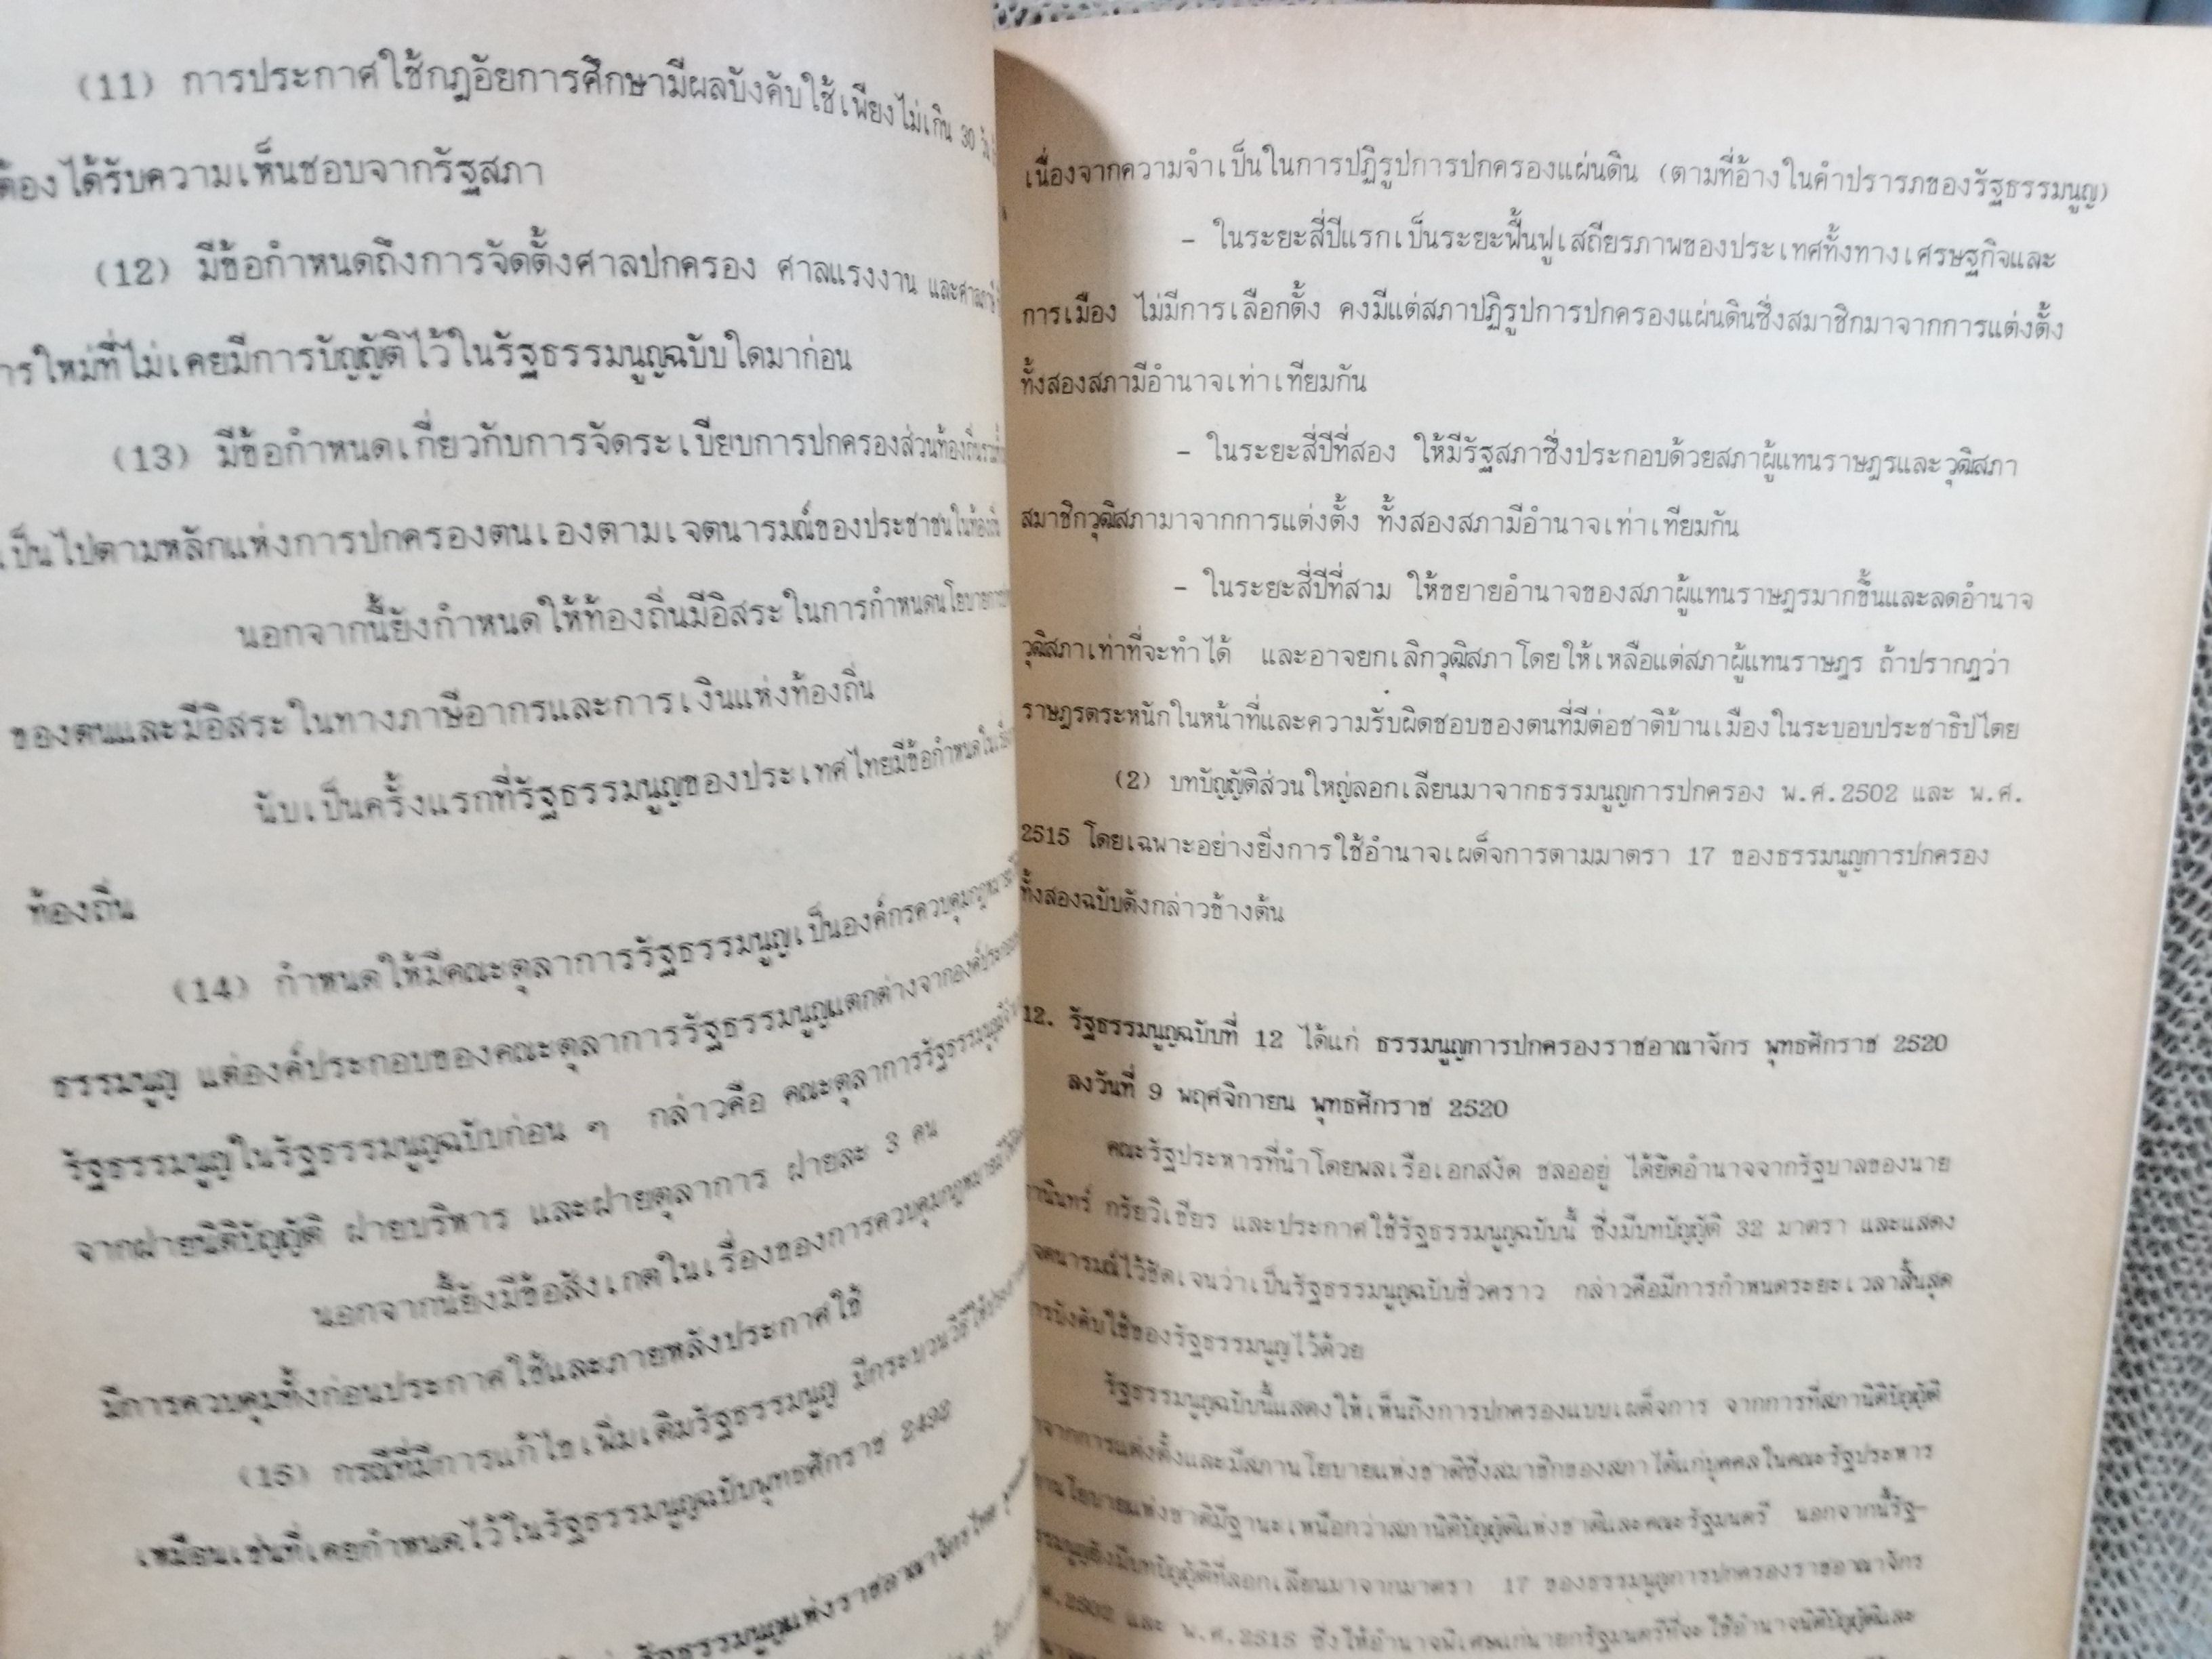 (11) การประกาศใช้กฎอัยการศึกษามีผลบังคับใช้เพียงไม่เกิน 30 วัน
ต้องได้รับความเห็นชอบจากรัฐสภา
(12) มีข้อกำหนดถึงการจัดตั้งศาลปกครอง ศาลแรงงาน และศาลภาษี
การใหม่ที่ไม่เคยมีการบัญญัติไว้ในรัฐธรรมนูญฉบับใดมาก่อน
(13) มีข้อกำหนดเกี่ยวกับการจัดระเบียบการปกครองส่วนท้องถิ่น
เป็นไปตามหลักแห่งการปกครองตนเองตามเจตนารมณ์ของประชาชนในท้องถิ่น
นอกจากนี้ยังกำหนดให้ท้องถิ่นมีอิสระในการกำหนดนโยบาย
ของตนและมีอิสระในทางภาษีอากรและการเงินแห่งท้องถิ่น
นับเป็นครั้งแรกที่รัฐธรรมนูญของประเทศไทยมีข้อกำหนด
ท้องถิ่น
(14) กำหนดให้มีคณะตุลาการรัฐธรรมนูญเป็นองค์กรควบคุมกฎหมาย
ธรรมนูญ แต่องค์ประกอบของคณะตุลาการรัฐธรรมนูญแตกต่างจากองค์ประกอบ
รัฐธรรมนูญในรัฐธรรมนูญฉบับก่อน ๆ กล่าวคือ คณะตุลาการรัฐธรรมนูญ
จากฝ่ายนิติบัญญัติ ฝ่ายบริหาร และฝ่ายตุลาการ ฝ่ายละ 3 คน
นอกจากนี้ยังมีข้อสังเกตในเรื่องของการควบคุมกฎหมาย
มีการควบคุมทั้งก่อนประกาศใช้และภายหลังประกาศใช้
(15) กรณีที่มีการแก้ไขเพิ่มเติมรัฐธรรมนูญ มีกระบวนวิธี
เหมือนเช่นที่เคยกำหนดไว้ในรัฐธรรมนูญฉบับพุทธศักราช 2492
รัฐธรรมนูญแห่งราชอาณาจักรไทย
เนื่องจากความจำเป็นในการปฏิรูปการปกครองแผ่นดิน (ตามที่อ้างในคำปรารภของรัฐธรรมนูญ)
- ในระยะสี่ปีแรกเป็นระยะฟื้นฟูเสถียรภาพของประเทศทั้งทางเศรษฐกิจและ
การเมือง ไม่มีการเลือกตั้ง คงมีแต่สภาปฏิรูปการปกครองแผ่นดินซึ่งสมาชิกมาจากการแต่งตั้ง
ทั้งสองสภามีอำนาจเท่าเทียมกัน
- ในระยะสี่ปีที่สอง ให้มีรัฐสภาซึ่งประกอบด้วยสภาผู้แทนราษฎรและวุฒิสภา
สมาชิกวุฒิสภามาจากการแต่งตั้ง ทั้งสองสภามีอำนาจเท่าเทียมกัน
- ในระยะสี่ปีที่สาม ให้ขยายอำนาจของสภาผู้แทนราษฎรมากขึ้นและลดอำนาจ
วุฒิสภาเท่าที่จะทำได้ และอาจยกเลิกวุฒิสภาโดยให้เหลือแต่สภาผู้แทนราษฎร ถ้าปรากฏว่า
ราษฎรตระหนักในหน้าที่และความรับผิดชอบของตนที่มีต่อชาติบ้านเมืองในระบอบประชาธิปไตย
(2) บทบัญญัติส่วนใหญ่ลอกเลียนมาจากธรรมนูญการปกครอง พ.ศ.2502 และ พ.ศ.
2515 โดยเฉพาะอย่างยิ่งการใช้อำนาจเผด็จการตามมาตรา 17 ของธรรมนูญการปกครอง
ทั้งสองฉบับดังกล่าวข้างต้น
12. รัฐธรรมนูญฉบับที่ 12 ได้แก่ ธรรมนูญการปกครองราชอาณาจักร พุทธศักราช 2520
ลงวันที่ 9 พฤศจิกายน พุทธศักราช 2520
คณะรัฐประหารที่นำโดยพลเรือเอกสงัด ชลออยู่ ได้ยึดอำนาจจากรัฐบาลของนาย
ธานินทร์ กรัยวิเชียร และประกาศใช้รัฐธรรมนูญฉบับนี้ ซึ่งมีบทบัญญัติ 32 มาตรา และแสดง
เจตนารมณ์ไว้ชัดเจนว่าเป็นรัฐธรรมนูญฉบับชั่วคราว กล่าวคือมีการกำหนดระยะเวลาสิ้นสุด
การบังคับใช้ของรัฐธรรมนูญไว้ด้วย
รัฐธรรมนูญฉบับนี้แสดงให้เห็นถึงการปกครองแบบเผด็จการ จากการที่สภานิติบัญญัติ
มาจากการแต่งตั้งและมีสภานโยบายแห่งชาติซึ่งสมาชิกของสภาได้แก่บุคคลในคณะรัฐประหาร
สภานโยบายแห่งชาติมีฐานะเหนือกว่าสภานิติบัญญัติแห่งชาติและคณะรัฐมนตรี นอกจากนี้รัฐ-
ธรรมนูญยังมีบทบัญญัติที่ลอกเลียนมาจากมาตรา 17 ของธรรมนูญการปกครองราชอาณาจักร
พ.ศ.2502 และ พ.ศ.2515 ซึ่งให้อำนาจพิเศษแก่นายกรัฐมนตรีที่จะใช้อำนาจนิติบัญญัติและ